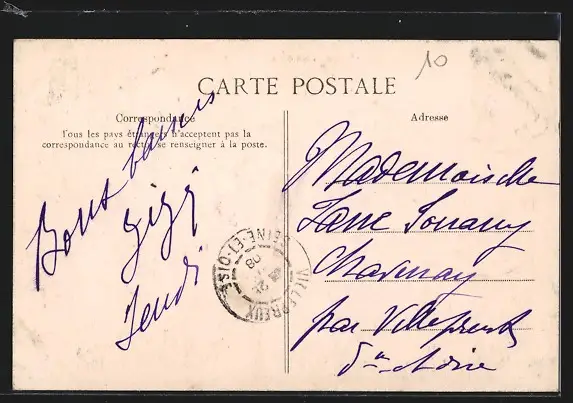 10
CARTE POSTALE
Correspondance
Tous les pays étrangers n'acceptent pas la
correspondance au recto, se renseigner à la poste.
Bons baisers
Gigi
Jeudi
Adresse
Mademoiselle
Chavenay
par Villepreux
SEINE-ET-OISE
VILLEPREUX
08